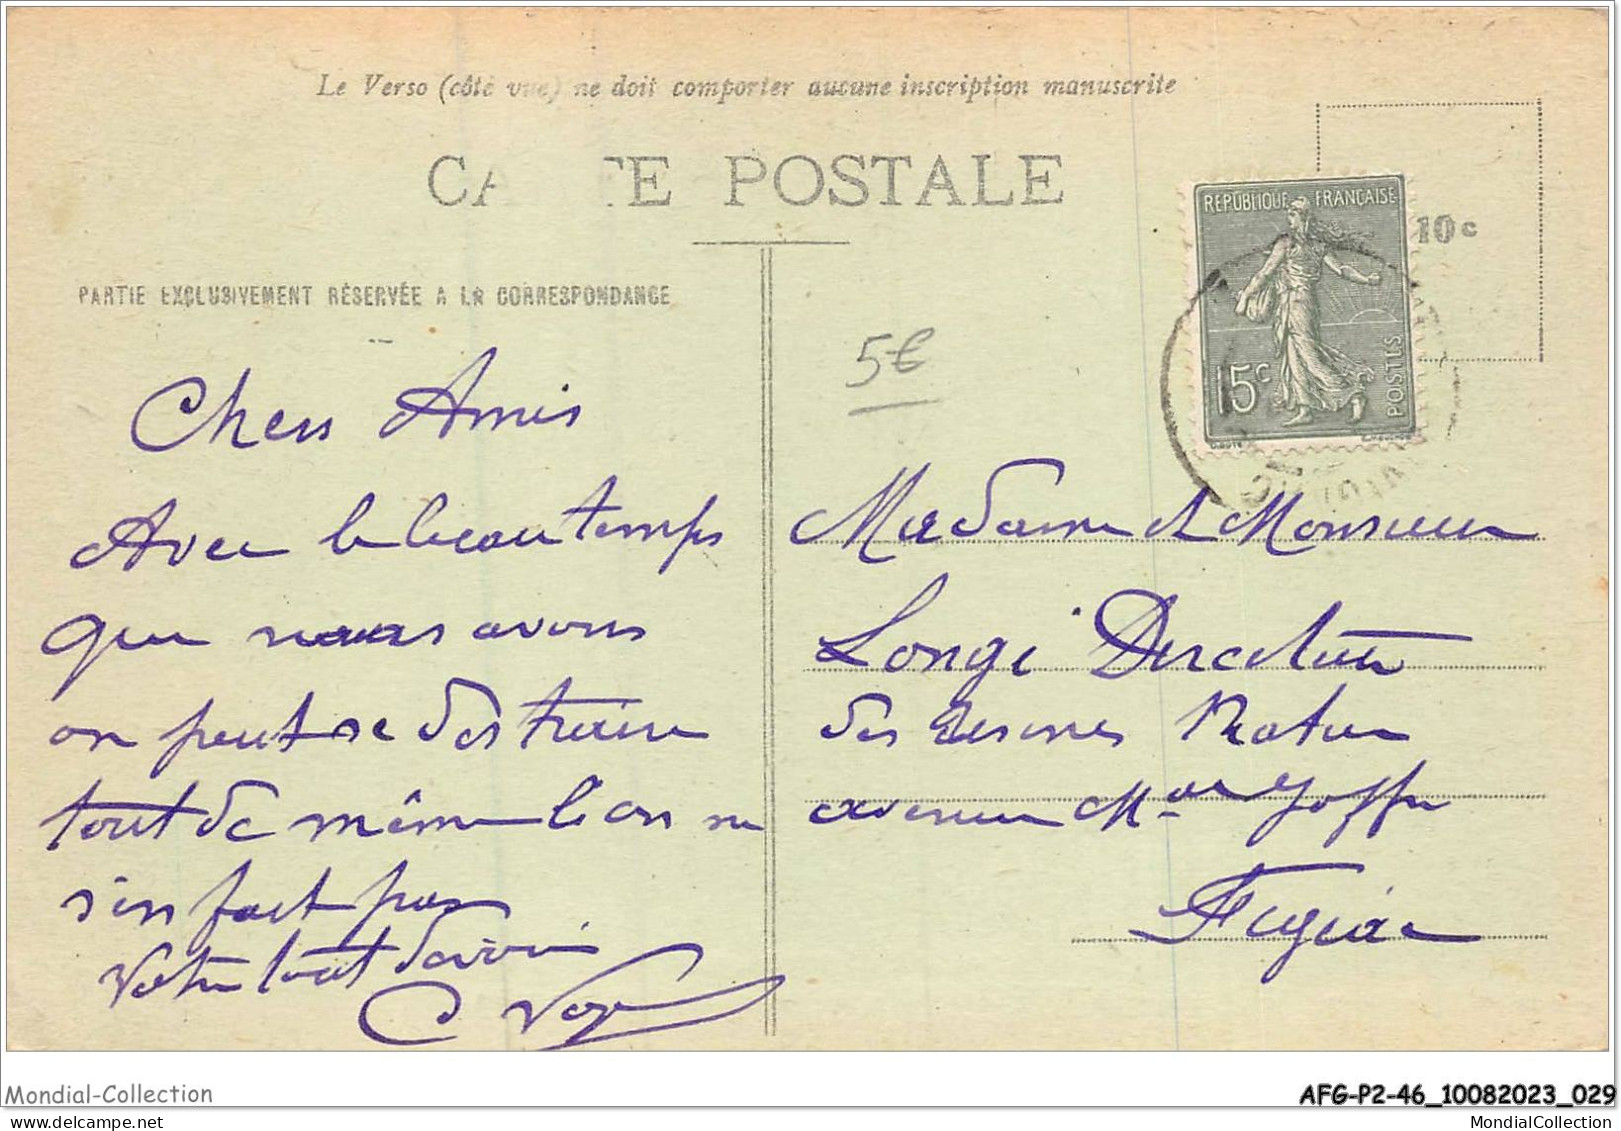 Le Verso (côté vue) ne doit comporter aucune inscription manuscrite
CARTE POSTALE
RÉPUBLIQUE FRANÇAISE
10 c
15 c
POSTES
PARTIE EXCLUSIVEMENT RÉSERVÉE A LA CORRESPONDANCE
5€
Chers Amis
Avec le beau temps
que nous avons
on peut se distraire
tout de même l'on ne
s'en fait pas
Votre tout dévoué
C
Madame et Monsieur
Longi Directeur
des Usines Ratier
avenue Mal Joffre
Figeac
Mondial-Collection
AFG-P2-46_10082023_029
MondialCollection